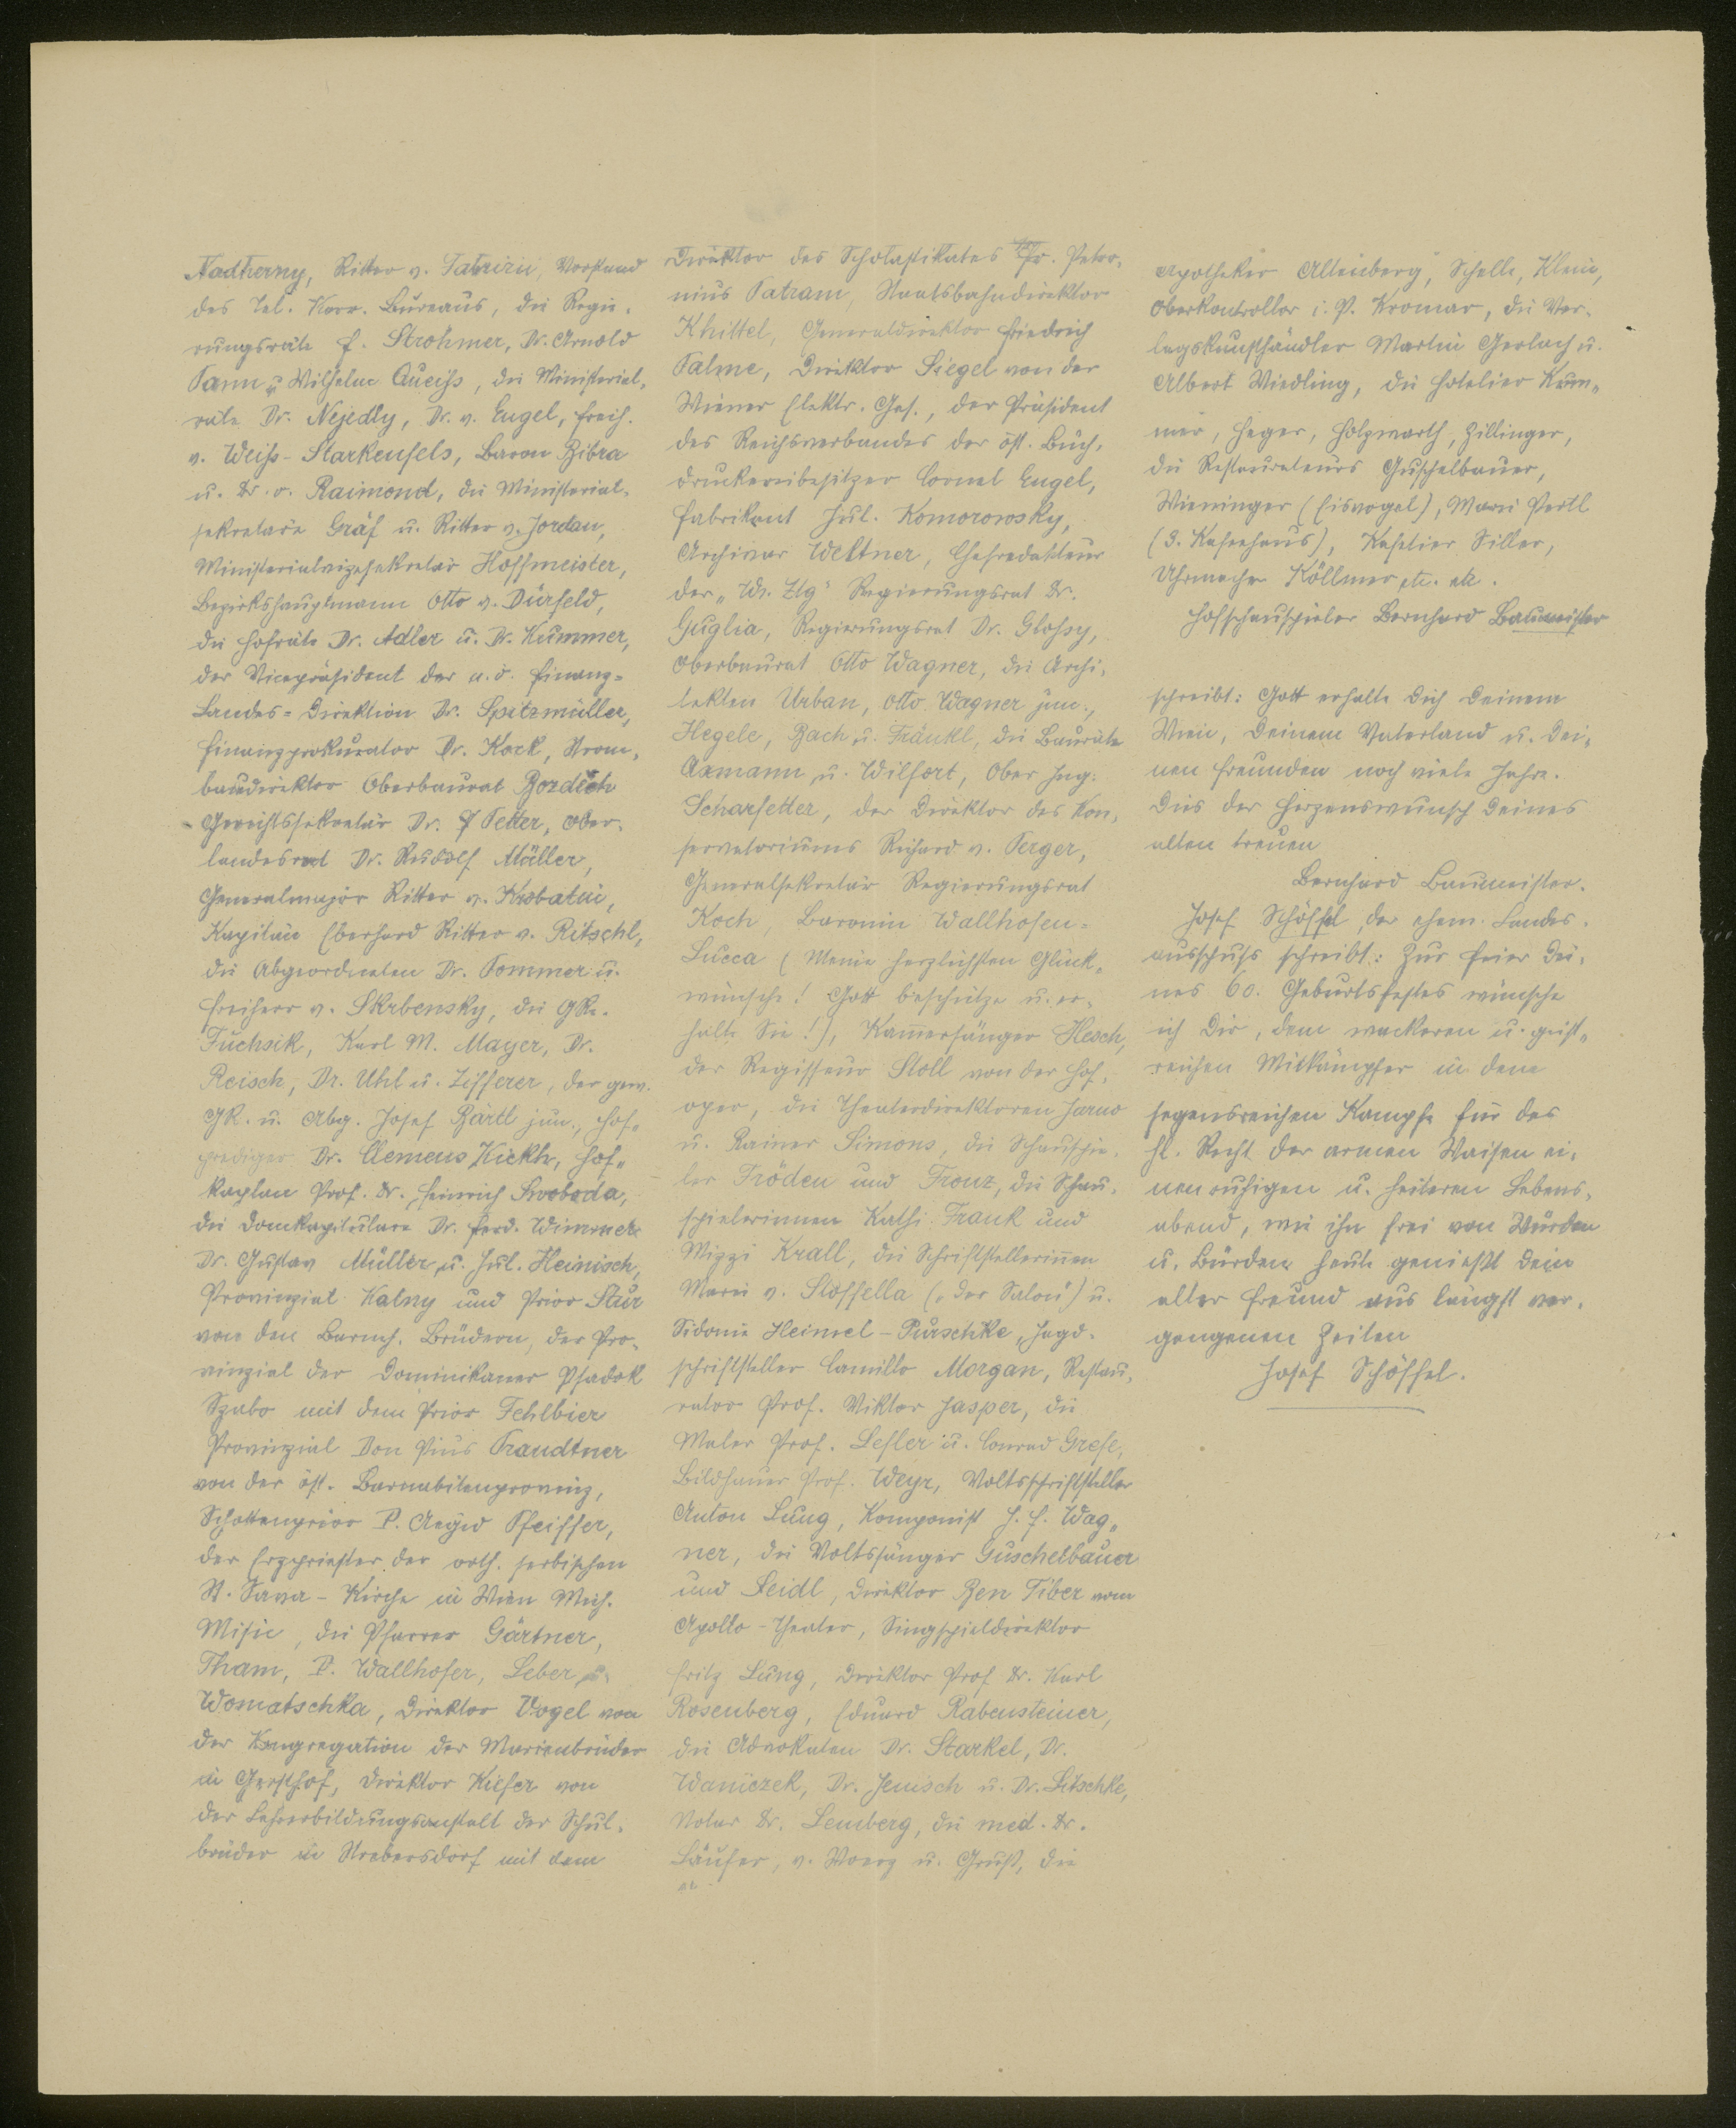 Nadherny, Ritter v. Fabrizii, Vorstand
des Tel. Korr. Bureaus, die Regie-
rungsräte F. Strohmer, Dr. Arnold
Pann u. Wilhelm Queiss, die Ministerial-
räte Dr. Nejedly, Dr. v. Engel, Freih.
v. Weiss-Starkenfels, Baron Bibra
u. Dr. v. Raimond, die Ministerial-
sekretäre Gräf u. Ritter v. Jordan,
Ministerialvizesekretär Hoffmeister,
Bezirkshauptmann Otto v. Dürfeld,
die Hofräte Dr. Adler u. Dr. Kummer,
der Vicepräsident der n.ö. Finanz-
Landes-Direktion Dr. Spitzmüller,
Finanzprokurator Dr. Kock, Strom-
baudirektor Oberbaurat Bozděch
Gerichtssekretär Dr. Petter, Ober-
landesrat Dr. Rudolf Müller,
Generalmajor Ritter v. Krobatin,
Kapitän Eberhard Ritter v. Ritschl,
die Abgeordneten Dr. Pommer u.
Freiherr v. Skrbensky, die GRe.
Fuchsik, Karl M. Mayer, Dr.
Reisch, Dr. Uhl u. Zifferer, der gew.
GR. u. Abg. Josef Bärtl jun., Hof-
prediger Dr. Clemens Kickh, Hof-
kaplan Prof. Dr. Heinrich Swoboda,
die Domkapitulare Dr. Ferd. Wimmer
Dr. Gustav Müller u. Jul. Heinisch,
Provinzial Kalny und Prior Staur
von den Barmh. Brüdern, der Pro-
vinzial der Dominikaner Pfadok
Szabo mit dem Prior Fehlbier
Provinzial Don Pius Trandtner
von der öst. Barnabitenprovinz,
Schottenprior P. Aegid Pfeiffer,
der Erzpriester der orth. serbischen
St. Sava-Kirche in Wien Mich.
Misic, die Pfarrer Gärtner,
Tham, P. Wallhofer, Leber u.
Womatschka, Direktor Vogel von
der Kongregation der Marienbrüder
in Gersthof, Direktor Kiefer von
der Lehrerbildungsanstalt der Schul-
brüder in Strebersdorf mit dem
Direktor des Scholastikates Fr. Petro-
nius Patram, Staatsbahndirektor
Khittel, Generaldirektor Friedrich
Palme, Direktor Siegel von der
Wiener Elektr. Ges., der Präsident
des Reichsverbandes der öst. Buch-
druckereibesitzer Cornel Engel,
Fabrikant Jul. Komorowsky,
Archivar Weltner, Chefredakteur
der „W. Ztg" Regierungsrat Dr.
Guglia, Regierungsrat Dr. Glossy,
Oberbaurat Otto Wagner, die Archi-
tekten Urban, Otto Wagner jun.,
Hegele, Bach u. Fränkl, die Bauräte
Axmann u. Wilfort, Ober Ing.
Scharfetter, der Direktor des Kon-
servatoriums Richard v. Perger,
Generalsekretär Regierungsrat
Koch, Baronin Wallhofen-
Lucca (Meine herzlichsten Glück-
wünsche! Gott beschütze u. er-
halte Sie!), Kammersänger Hesch,
der Regisseur Stoll von der Hof-
oper, die Theaterdirektoren Jarno
u. Rainer Simons, die Schauspie-
ler Fröden und Fronz, die Schau-
spielerinnen Kathi Frank und
Mizzi Krall, die Schriftstellerinnen
Marie v. Stoffella („Der Salon") u.
Sidonie Heimel-Purschke, Jagd-
schriftsteller Camillo Morgan, Restau-
rator Prof. Viktor Jasper, die
Maler Prof. Lefler u. Conrad Grefe,
Bildhauer Prof. Weyr, Volksschriftsteller
Anton Lang, Komponist J. F. Wag-
ner, die Volkssänger Guschelbauer
und Seidl, Direktor Ben Tiber vom
Apollo-Theater, Singspieldirektor
Fritz Lung, Direktor Prof. Dr. Karl
Rosenberg, Eduard Rabensteiner,
die Advokaten Dr. Starkel, Dr.
Waniczek, Dr. Jenisch u. Dr. Litschke,
Notar Dr. Lemberg, die med. Dr.
Läufer, v. Woerz u. Gruss, die
Apotheker Altenberg, Schelle, Klein,
Oberkontrollor i. P. Kromar, die Ver-
lagskunsthändler Martin Gerlach u.
Albert Wiedling, die Hotelier Kum-
mer, Heger, Holzwarth, Zillinger,
die Restaurateurs Guschelbauer,
Wieninger (Eisvogel), Marie Pertl
(3. Kaffeehaus), Kafetier Siller,
Uhrmacher Köllmer etc. etc.
Hofschauspieler Bernhard Baumeister
schreibt: Gott erhalte Dich Deinem
Wien, Deinem Vaterland u. Dei-
nen Freunden noch viele Jahre.
Dies der Herzenswunsch Deines
alten treuen
Bernhard Baumeister.
Josef Schöffel, der ehem. Landes-
ausschuss schreibt: Zur Feier Dei-
nes 60. Geburtsfestes wünsche
ich Dir, dem wackeren u. geist-
reichen Mitkämpfer in dem
segensreichen Kampfe für das
hl. Recht der armen Waisen ei-
nen ruhigen u. heiteren Lebens-
abend, wie ihn frei von Würden
u. Bürden heute genießt Dein
alter Freund aus längst ver-
gangenen Zeiten
Josef Schöffel.